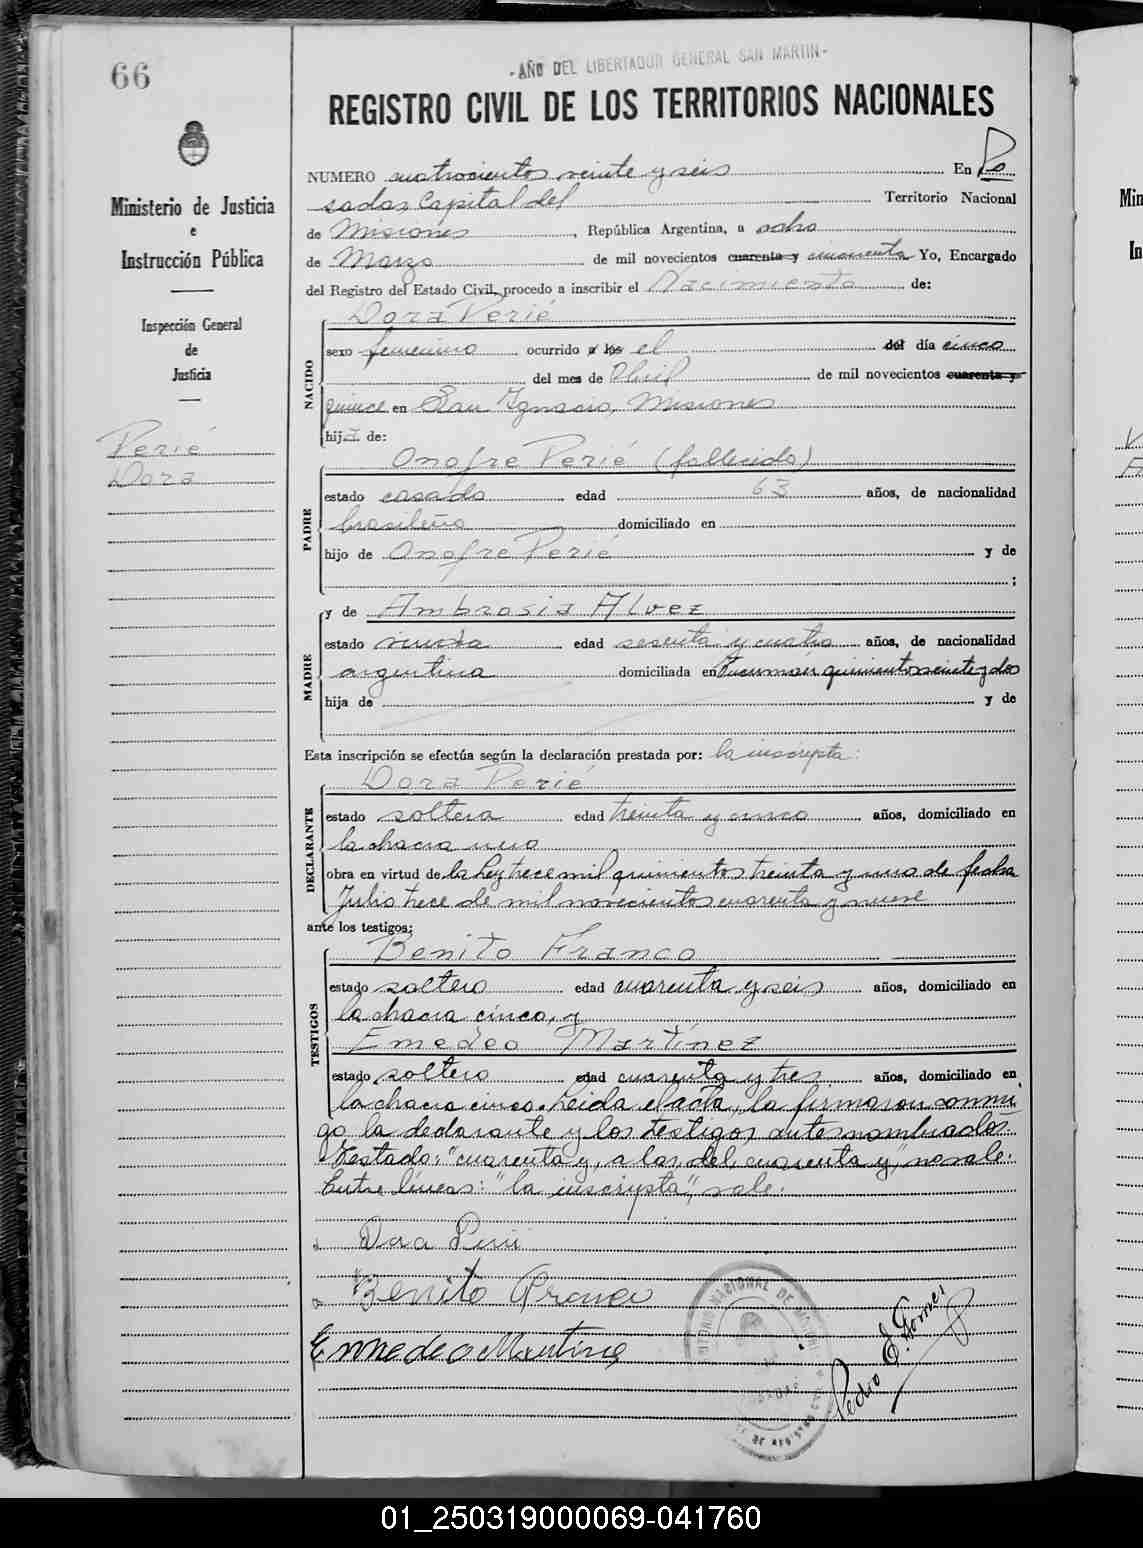 66
-AÑO DEL LIBERTADOR GENERAL SAN MARTIN-
REGISTRO CIVIL DE LOS TERRITORIOS NACIONALES
Ministerio de Justicia
e
Instrucción Pública
Inspección General
de
Justicia
Perié
Dora
NUMERO cuatrocientos veinte y seis En Po
sadas Capital del Territorio Nacional
de Misiones, República Argentina, a ocho
de Marzo de mil novecientos cuarenta y cincuenta Yo, Encargado
del Registro del Estado Civil, procedo a inscribir el Nacimiento de:
Dora Perié
NACIDO
sexo femenino ocurrido a las el del día cinco
del mes de Abril de mil novecientos cuarenta y
quince en San Ignacio, Misiones
hija de:
Onofre Perié (fallecido)
PADRE
estado casado edad 63 años, de nacionalidad
brasileño domiciliado en
hijo de Onofre Perié y de
;
y de Ambrosia Alvez
MADRE
estado viuda edad sesenta y cuatro años, de nacionalidad
argentina domiciliada en Tucuman quinientos veinte y dos
hija de y de
Esta inscripción se efectúa según la declaración prestada por: la inscripta:
Dora Perié
DECLARANTE
estado soltera edad treinta y cinco años, domiciliado en
la chacra uno
obra en virtud de la Ley trece mil quinientos treinta y uno de fecha
Julio trece de mil novecientos cuarenta y nueve
ante los testigos:
Benito Franco
TESTIGOS
estado soltero edad cuarenta y seis años, domiciliado en
la chacra cinco, y
Emedeo Martínez
estado soltero edad cuarenta y tres años, domiciliado en
la chacra cinco. Leida el acta, la firmaron conmi
go la declarante y los testigos antes nombrados.
Testado: "cuarenta y, a las, del, cuarenta y," no vale.
Entre líneas: "la inscripta", vale.
Dora Perié
Benito Franco
Enmedeo Martines
Pedro E. Gomez
01_250319000069-041760